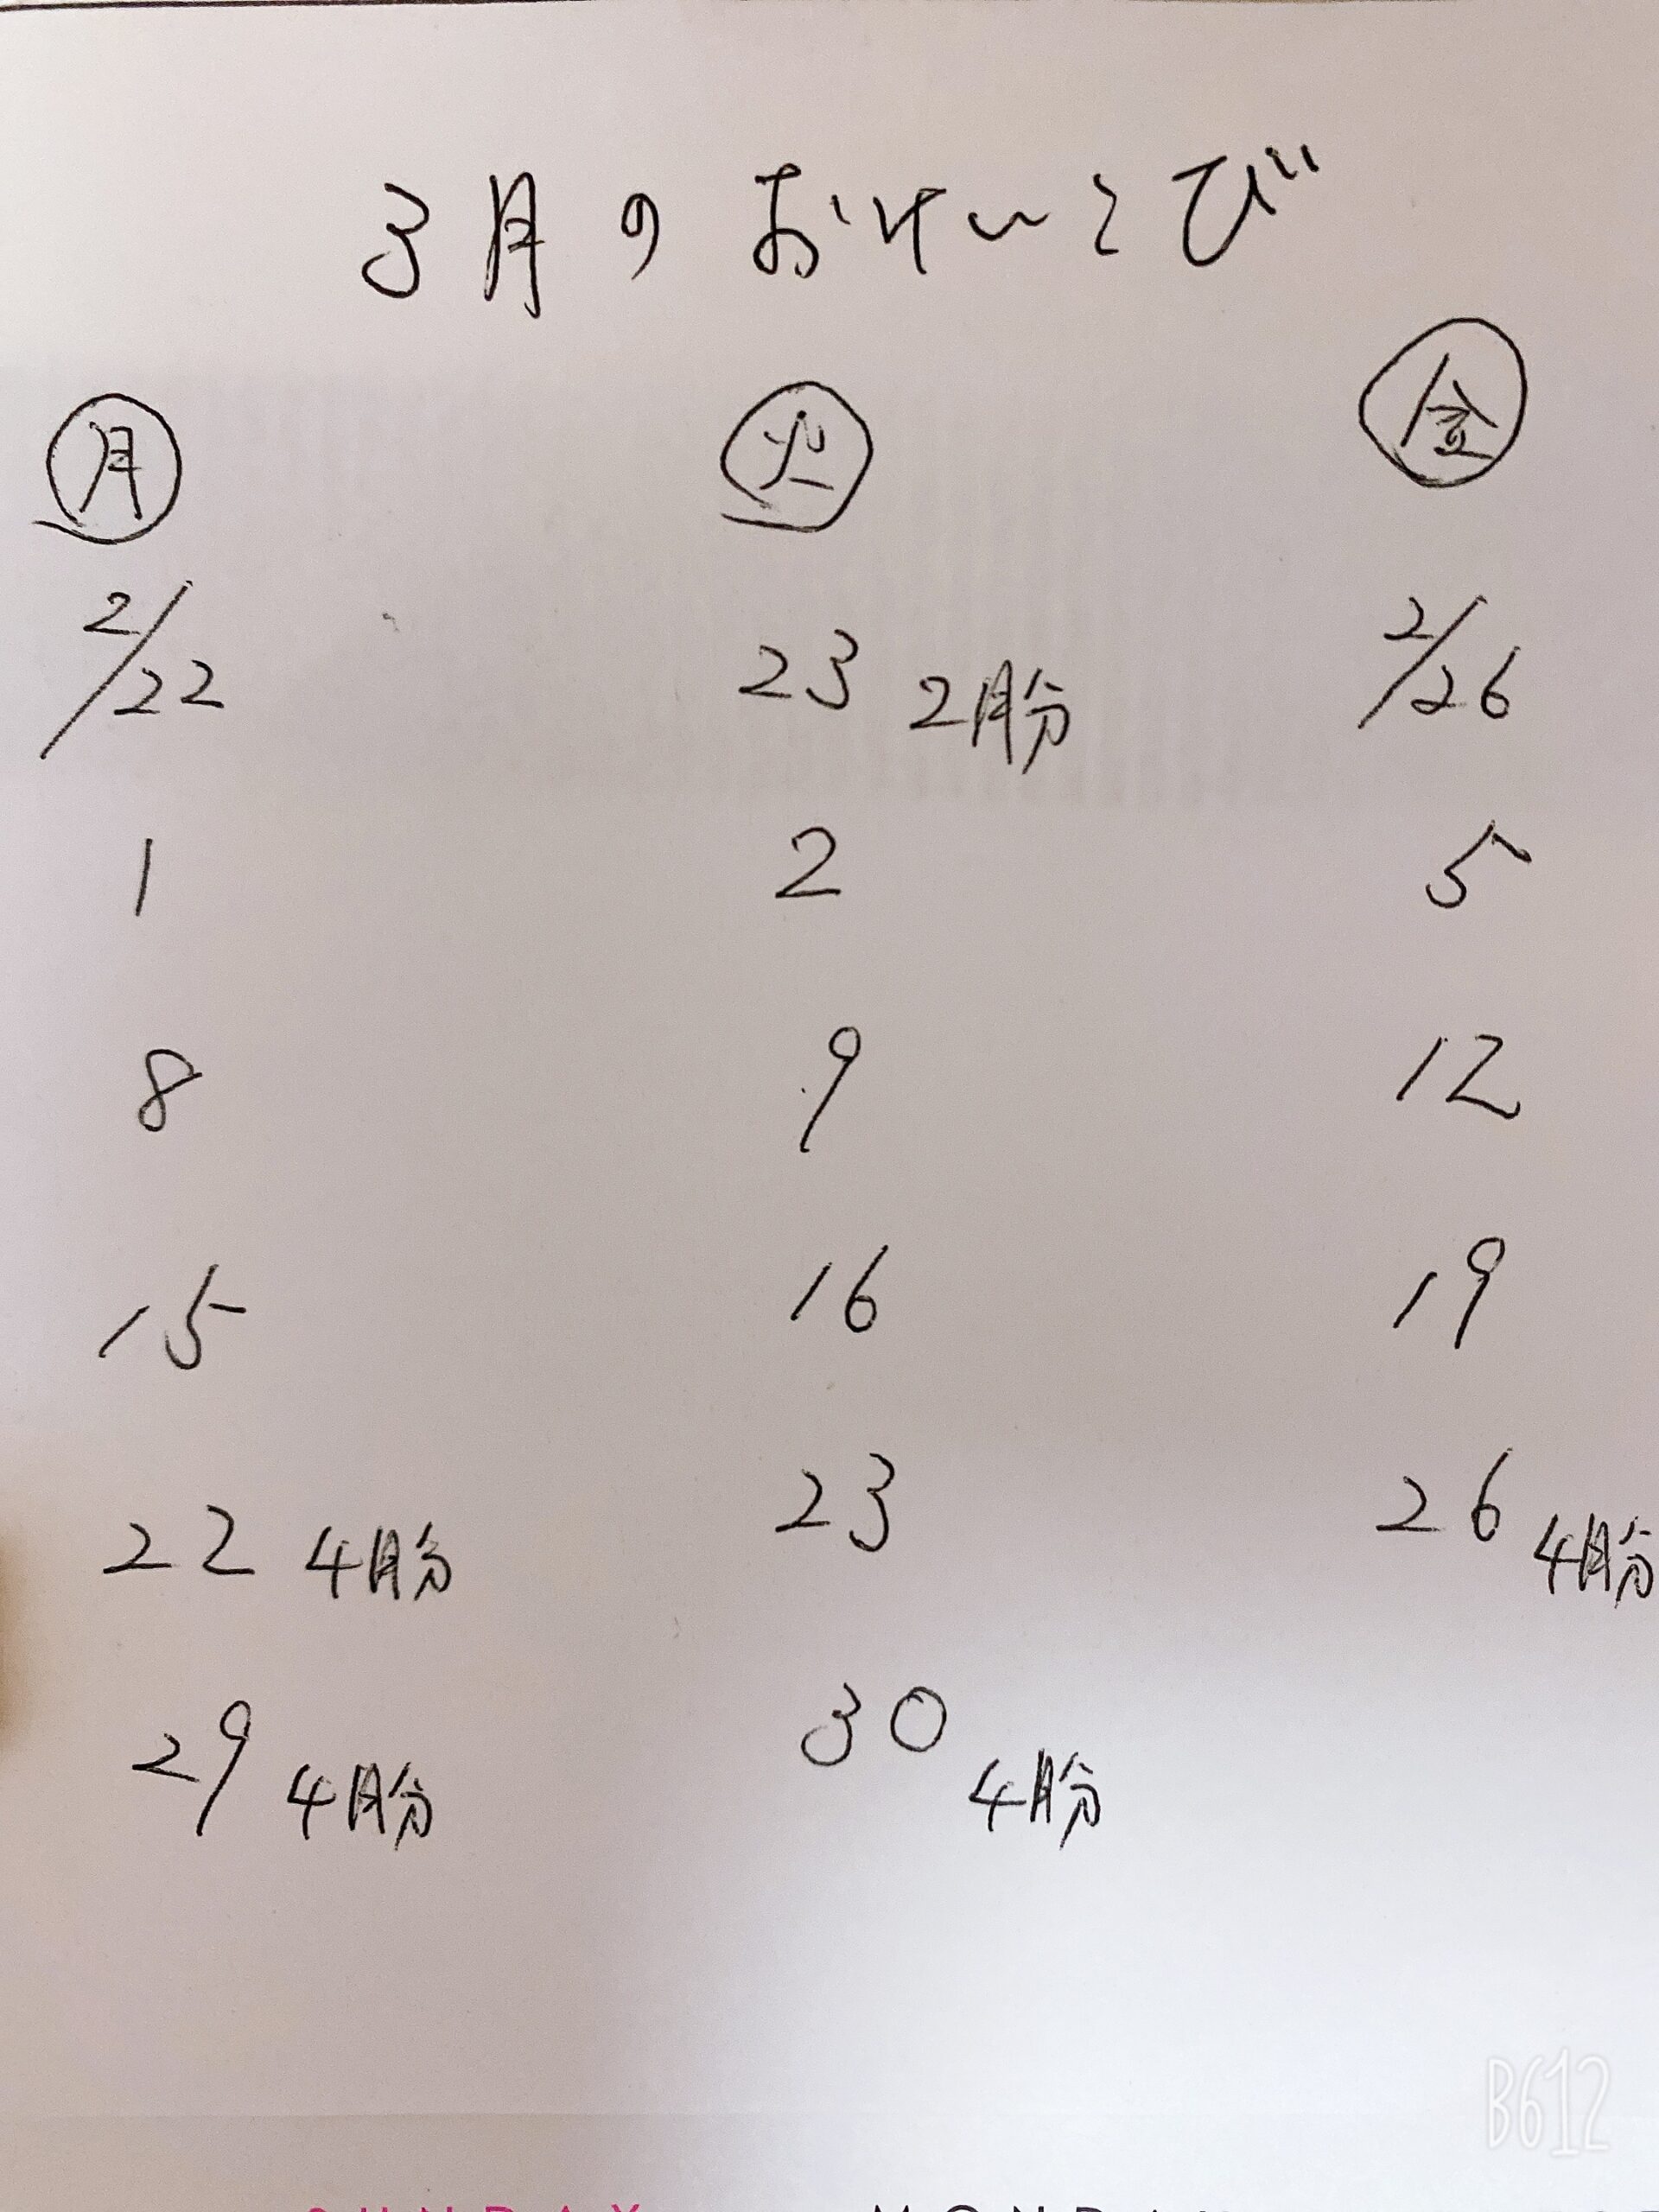 3月のおけいこび
月 火 金
2/22 23 2月分 2/26
1 2 5
8 9 12
15 16 19
22 4月分 23 26 4月分
29 4月分 30 4月分
B612
SUNDAY MONDAY